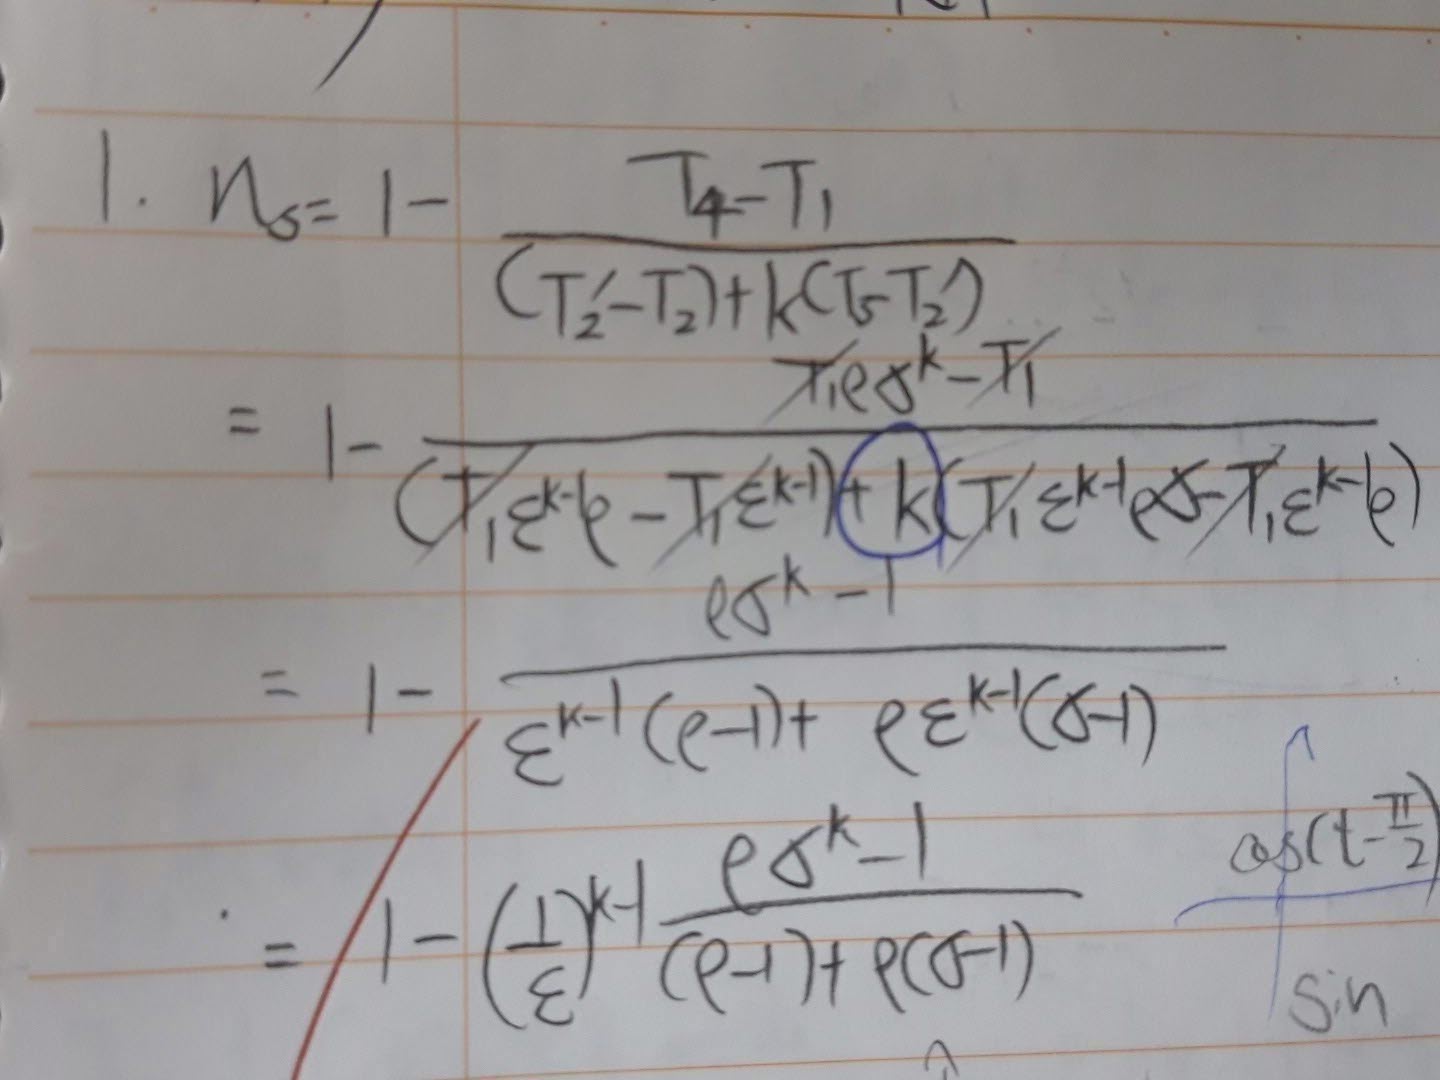 1. η_s = 1 - (T_4 - T_1) / ((T_2' - T_2) + k(T_3 - T_2'))
= 1 - (T_1ρσ^k - T_1) / ((T_1ε^(k-1)ρ - T_1ε^(k-1)) + k(T_1ε^(k-1)ρσ - T_1ε^(k-1)ρ))
= 1 - (ρσ^k - 1) / (ε^(k-1)(ρ-1) + ρε^(k-1)(σ-1))
cos(t - π/2)
= 1 - (1/ε)^(k-1) (ρσ^k - 1) / ((ρ-1) + ρ(σ-1))
sin